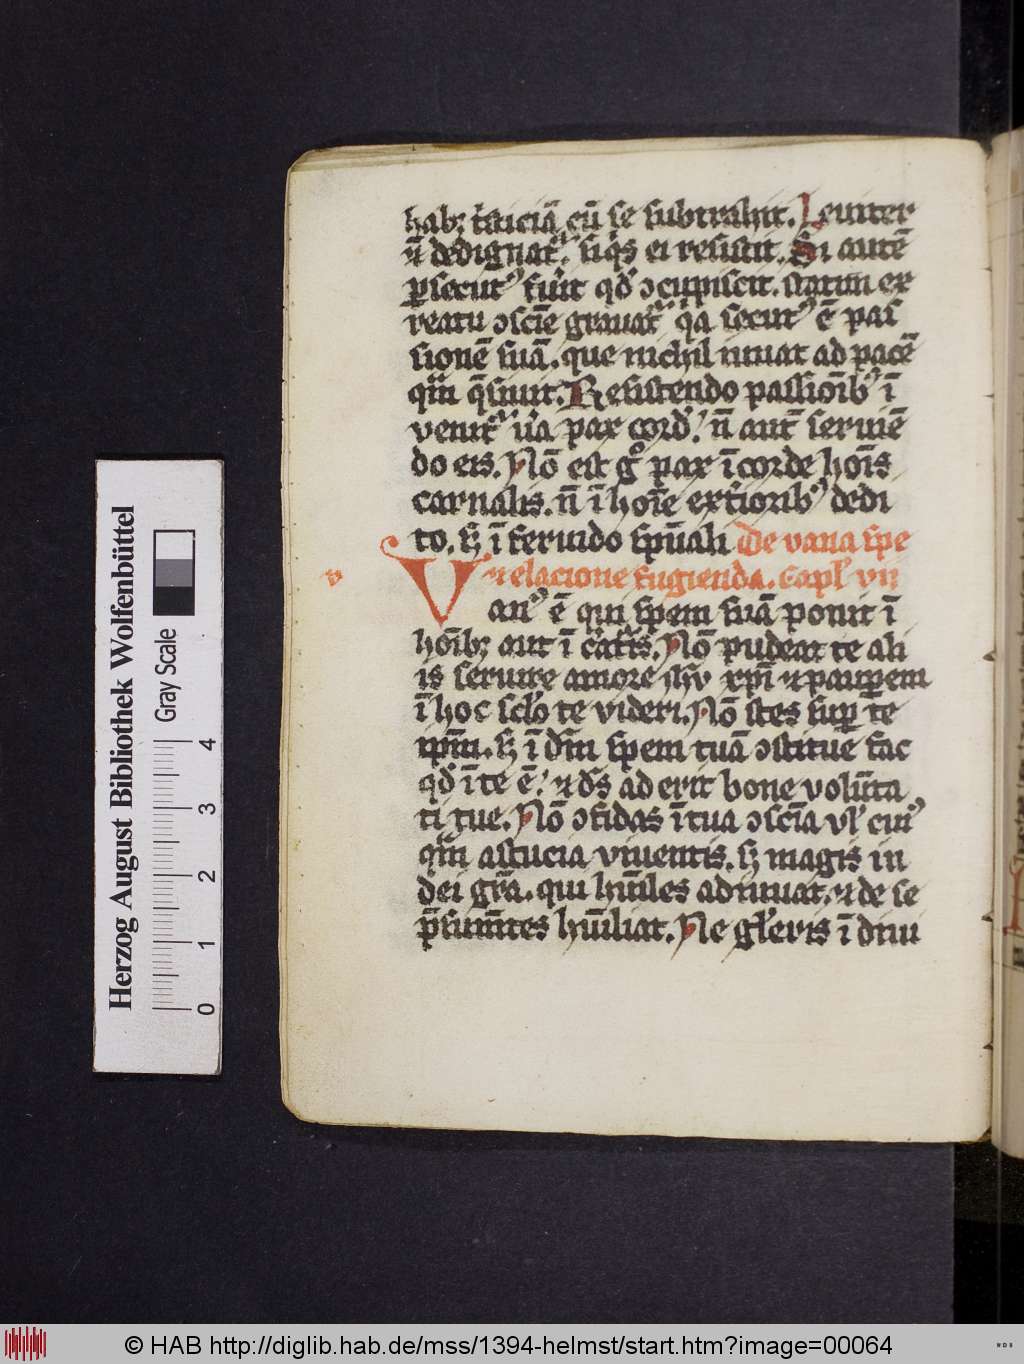 habꝫ tͥsticiā cū se subtrahit. Leuiter
ꝟ dedignat᷑ siqͥs ei resistit. Si autē
ꝑsecutꝰ fuͥit qd̓ ↄcupiscit. statim ex
reatu ↄsciē̄ grauat᷑ qͥa secutꝰ ē pas
sionē suā. que nichil iuuat ad pacē
qm̄ q̄siuit. Resistendo passiōibꝰ ī
venit᷑ ṽa pax cord̓. n̄ aut̄ seruiē
do eis. Nō est gͦ pax ī corde hōis
carnalis. n̄ ī hoīe ext̓ioribꝰ dedi
to. sꝫ ī feruido spūali De vana spe
⁊ elacione fugienda. Capl̓ vii
v
Vanꝰ ē qui spem suā ponit ī
hoībꝫ aut ī c̓atͥs. Nō pudeat te ali
is seruire amore ih̄u xp̄i ⁊ pauꝑem
ī hoc scl̓o te videri. Nō stes suꝑ te
ip̄m. sꝫ ī dn̄o spem tuā ↄstitue fac
qd̓ ī te ē. ⁊ ds̄ ad erit bone volūta
ti tue. Nō ↄfidas ī tua ↄscīa vl̓ cuiꝰ
qm̄ astucia viuentis. sꝫ magis in
dei gr̄a. qui hūiles adiuuat. ⁊ de se
p̄sumētes hūiliat. Ne gl̓eris ī diui
Herzog August Bibliothek Wolfenbüttel
Gray Scale
0 1 2 3 4
© HAB http://diglib.hab.de/mss/1394-helmst/start.htm?image=00064